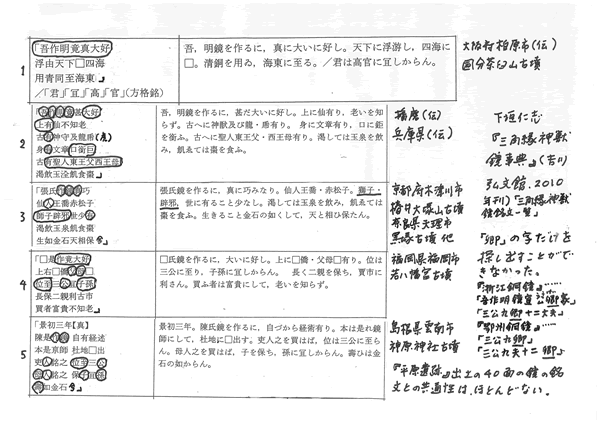 1
「吾作明竟真大好
浮由天下□四海
用青同至海東」
／「君」「宜」「高」「官」（方格銘）
吾，明鏡を作るに，真に大いに好し。天下に浮游し，四海に
□。清銅を用ゐ，海東に至る。／君は高官に宜しからん。
大阪府柏原市（伝）
国分茶臼山古墳
2
甚大好
上有仙不知老
古有神守及龍
身 文章口銜巨
古有聖人東王父西王母
渇飲玉泩飢食棗
吾，明鏡を作るに，甚だ大いに好し。上に仙有り，老いを知
らず。古へに神獣及び龍・虎有り。身に文章有り，口に鉅
を銜ふ。古へに聖人有り，東王父・西王母有り。渇しては玉泉を飲
み，飢ゑては棗を食ふ。
播磨（伝）
兵庫県（伝）
下垣仁志
『三角縁神獣
鏡事典』（吉川
弘文館．2010
年刊）「三角縁神獣
鏡銘文一覧」
3
「張氏 巧
仙人王喬赤松子
師子辟邪世少有
渇飲玉泉飢食棗
生如金石天相保兮」
張氏鏡を作るに，真に巧みなり。仙人王喬・赤松子。獅子・
辟邪，世に有ること少なし。渇しては玉泉を飲み，飢ゑては
棗を食ふ。生きること金石の如くして，天と相ひ保たん。
京都府木津川市
椿井大塚山古墳
奈良県天理市
黒塚古墳 他
4
「□是作竟大好
上右□
位至三公宜子孫
長保二親利古市
買者富貴不知老」
□氏鏡を作るに，大いに好し。上に□僑・父母□有り。位は
三公に至り，子孫に宜しからん。 長く二親を保ち，賈市に
利さん。買ふ者は富貴にして，老いを知らず。
福岡県福岡市
若八幡宮古墳
「卿」の字だけを
探し出すことがで
きなかった。
『浙江銅鏡』……
「三公卿十二大夫」
『鄂州銅鏡』……
「三公九卿」
「三公九夫十二卿」
5
「景初三年【真】
陳是作鏡 自有経述
本是京師 杜地□出
吏人銘之 位至三公
母人銘之 保子宜孫
寿如金石兮」
景初三年。陳氏鏡を作るに，自づから経術有り。本は是れ鏡
師にして，杜地に□出す。吏人之に買はば，位は三公に至ら
ん。母人之を買はば，子を保ち，孫に宜しからん。寿ひは金
石の如からん。
島根県雲南市
神原神社古墳
『平原遺跡』出土の40面の鏡の銘
文との共通性は、ほとんどない。